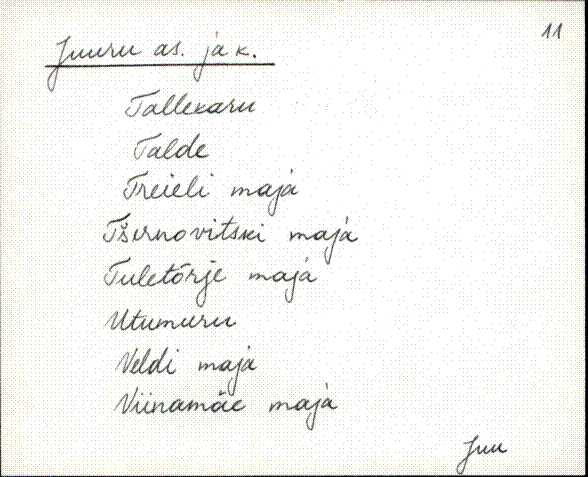 11
Juuru as. ja k.
Tallekaru
Talde
Treieli maja
Tširnovitski maja
Tuletõrje maja
Utumuru
Veldi maja
Viinamäe maja
Juu